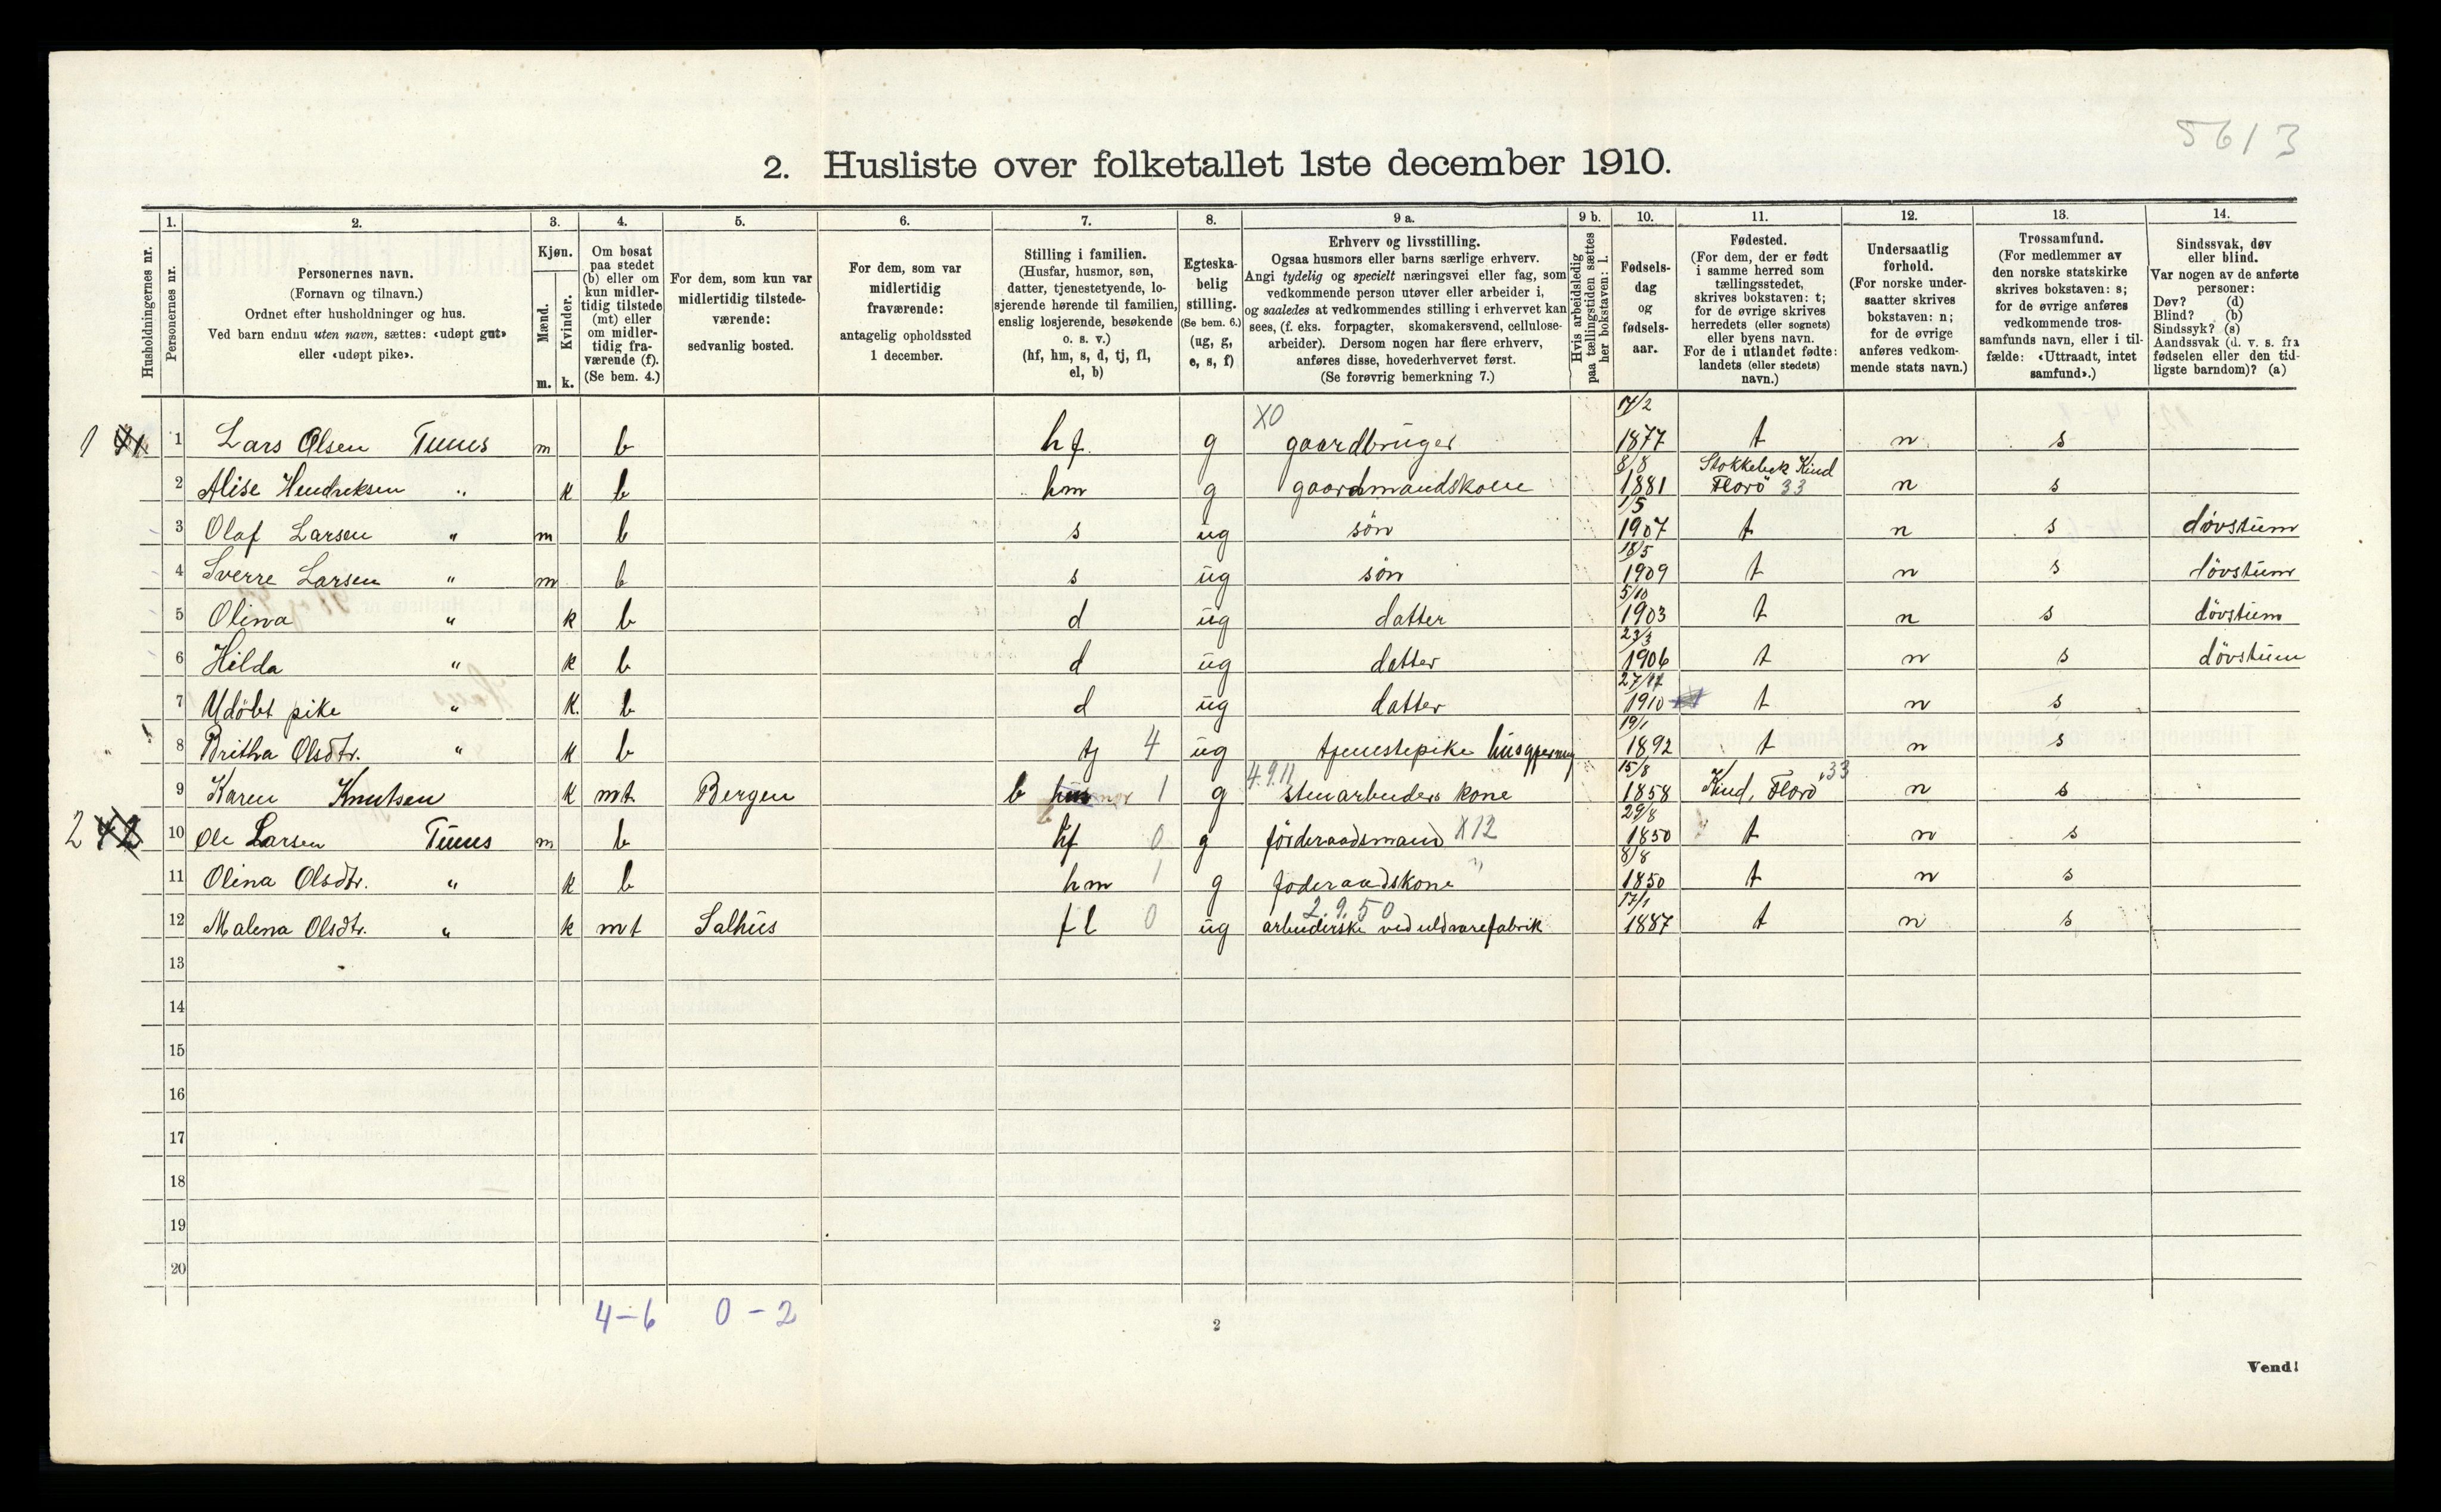 5613
2. Husliste over folketallet 1ste december 1910.
Husholdningernes nr.
1.
Personernes nr.
2.
Personernes navn.
(Fornavn og tilnavn.)
Ordnet efter husholdninger og hus.
Ved barn endnu uten navn, sættes: «udøpt gut»
eller «udøpt pike».
3.
Kjøn.
Mænd.
Kvinder.
m. k.
4.
Om bosat
paa stedet
(b) eller om
kun midler-
tidig tilstede
(mt) eller
om midler-
tidig fra-
værende (f).
(Se bem. 4.)
5.
For dem, som kun var
midlertidig tilstede-
værende:
sedvanlig bosted.
6.
For dem, som var
midlertidig
fraværende:
antagelig opholdssted
1 december.
7.
Stilling i familien.
(Husfar, husmor, søn,
datter, tjenestetyende, lo-
sjerende hørende til familien,
enslig losjerende, besøkende
o. s. v.)
(hf, hm, s, d, tj, fl,
el, b)
8.
Egteska-
belig
stilling.
(Se bem. 6.)
(ug, g,
e, s, f)
9 a.
Erhverv og livsstilling.
Ogsaa husmors eller barns særlige erhverv.
Angi tydelig og specielt næringsvei eller fag, som
vedkommende person utøver eller arbeider i,
og saaledes at vedkommendes stilling i erhvervet kan
sees, (f. eks. forpagter, skomakersvend, cellulose-
arbeider). Dersom nogen har flere erhverv,
anføres disse, hovederhvervet først.
(Se forøvrig bemerkning 7.)
9 b.
Hvis arbeidsledig
paa tællingstiden sættes
her bokstaven: l.
10.
Fødsels-
dag
og
fødsels-
aar.
11.
Fødested.
(For dem, der er født
i samme herred som
tællingsstedet,
skrives bokstaven: t;
for de øvrige skrives
herredets (eller sognets)
eller byens navn.
For de i utlandet fødte:
landets (eller stedets)
navn.)
12.
Undersaatlig
forhold.
(For norske under-
saatter skrives
bokstaven: n;
for de øvrige
anføres vedkom-
mende stats navn.)
13.
Trossamfund.
(For medlemmer av
den norske statskirke
skrives bokstaven: s;
for de øvrige anføres
vedkommende tros-
samfunds navn, eller i til-
fælde: «Uttraadt, intet
samfund».)
14.
Sindssvak, døv
eller blind.
Var nogen av de anførte
personer:
Døv? (d)
Blind? (b)
Sindssyk? (s)
Aandssvak (d. v. s. fra
fødselen eller den tid-
ligste barndom)? (a)
1 41 1 Lars Olsen Tunes m b hf g X0 gaardbruger 14/2 1877 t n s
2 Alise Hendreksen " k b hm g gaardmandskone 8/8 1881 Stokkebek Kind Florö 33 n s
3 Olaf Larsen " m b s ug sön 1/5 1907 t n s dövstum
4 Sverre Larsen " m b s ug sön 18/5 1909 t n s dövstum
5 Olina " k b d ug datter 5/10 1903 t n s dövstum
6 Hilda " k b d ug datter 23/3 1906 t n s dövstum
7 Udöbt pike " k. b d ug datter 27/11 1910 t n s
8 Britha Olsdtr. " k b tj 4 ug tjenestepike husgjerning 19/1 1892 t n s
9 Karen Knutsen k mt Bergen b 1 g 4.9.11 stenarbeiders kone 15/8 1858 Kind, Florö 33 n s
2 42 10 Ole Larsen Tunes m b hf 0 g förderaadsmand X12 29/8 1850 t n s
11 Olina Olsdtr. " k b hm 1 g foderaadskone " 8/8 1850 t n s
12 Malena Olsdtr. " k mt Salhus fl 0 ug 2.9.50 arbeiderske ved uldvarefabrik 17/1 1887 t n s
13
14
15
16
17
18
19
20
4-6 0-2
2
Vend!